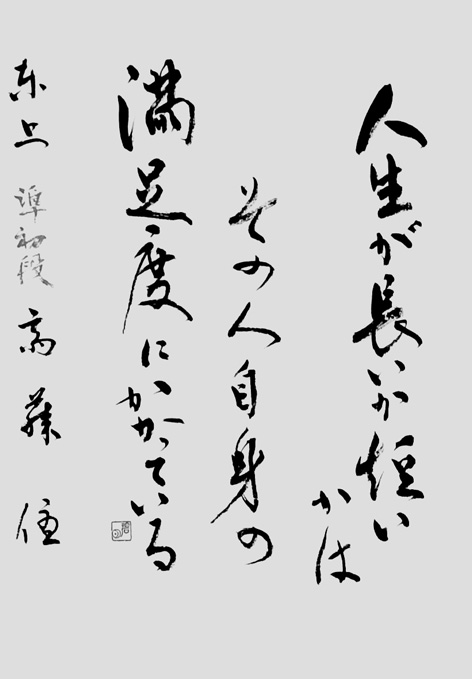 人生が長いか短い
かは
その人自身の
満足度にかかっている
東上 準初段 高藤 佳